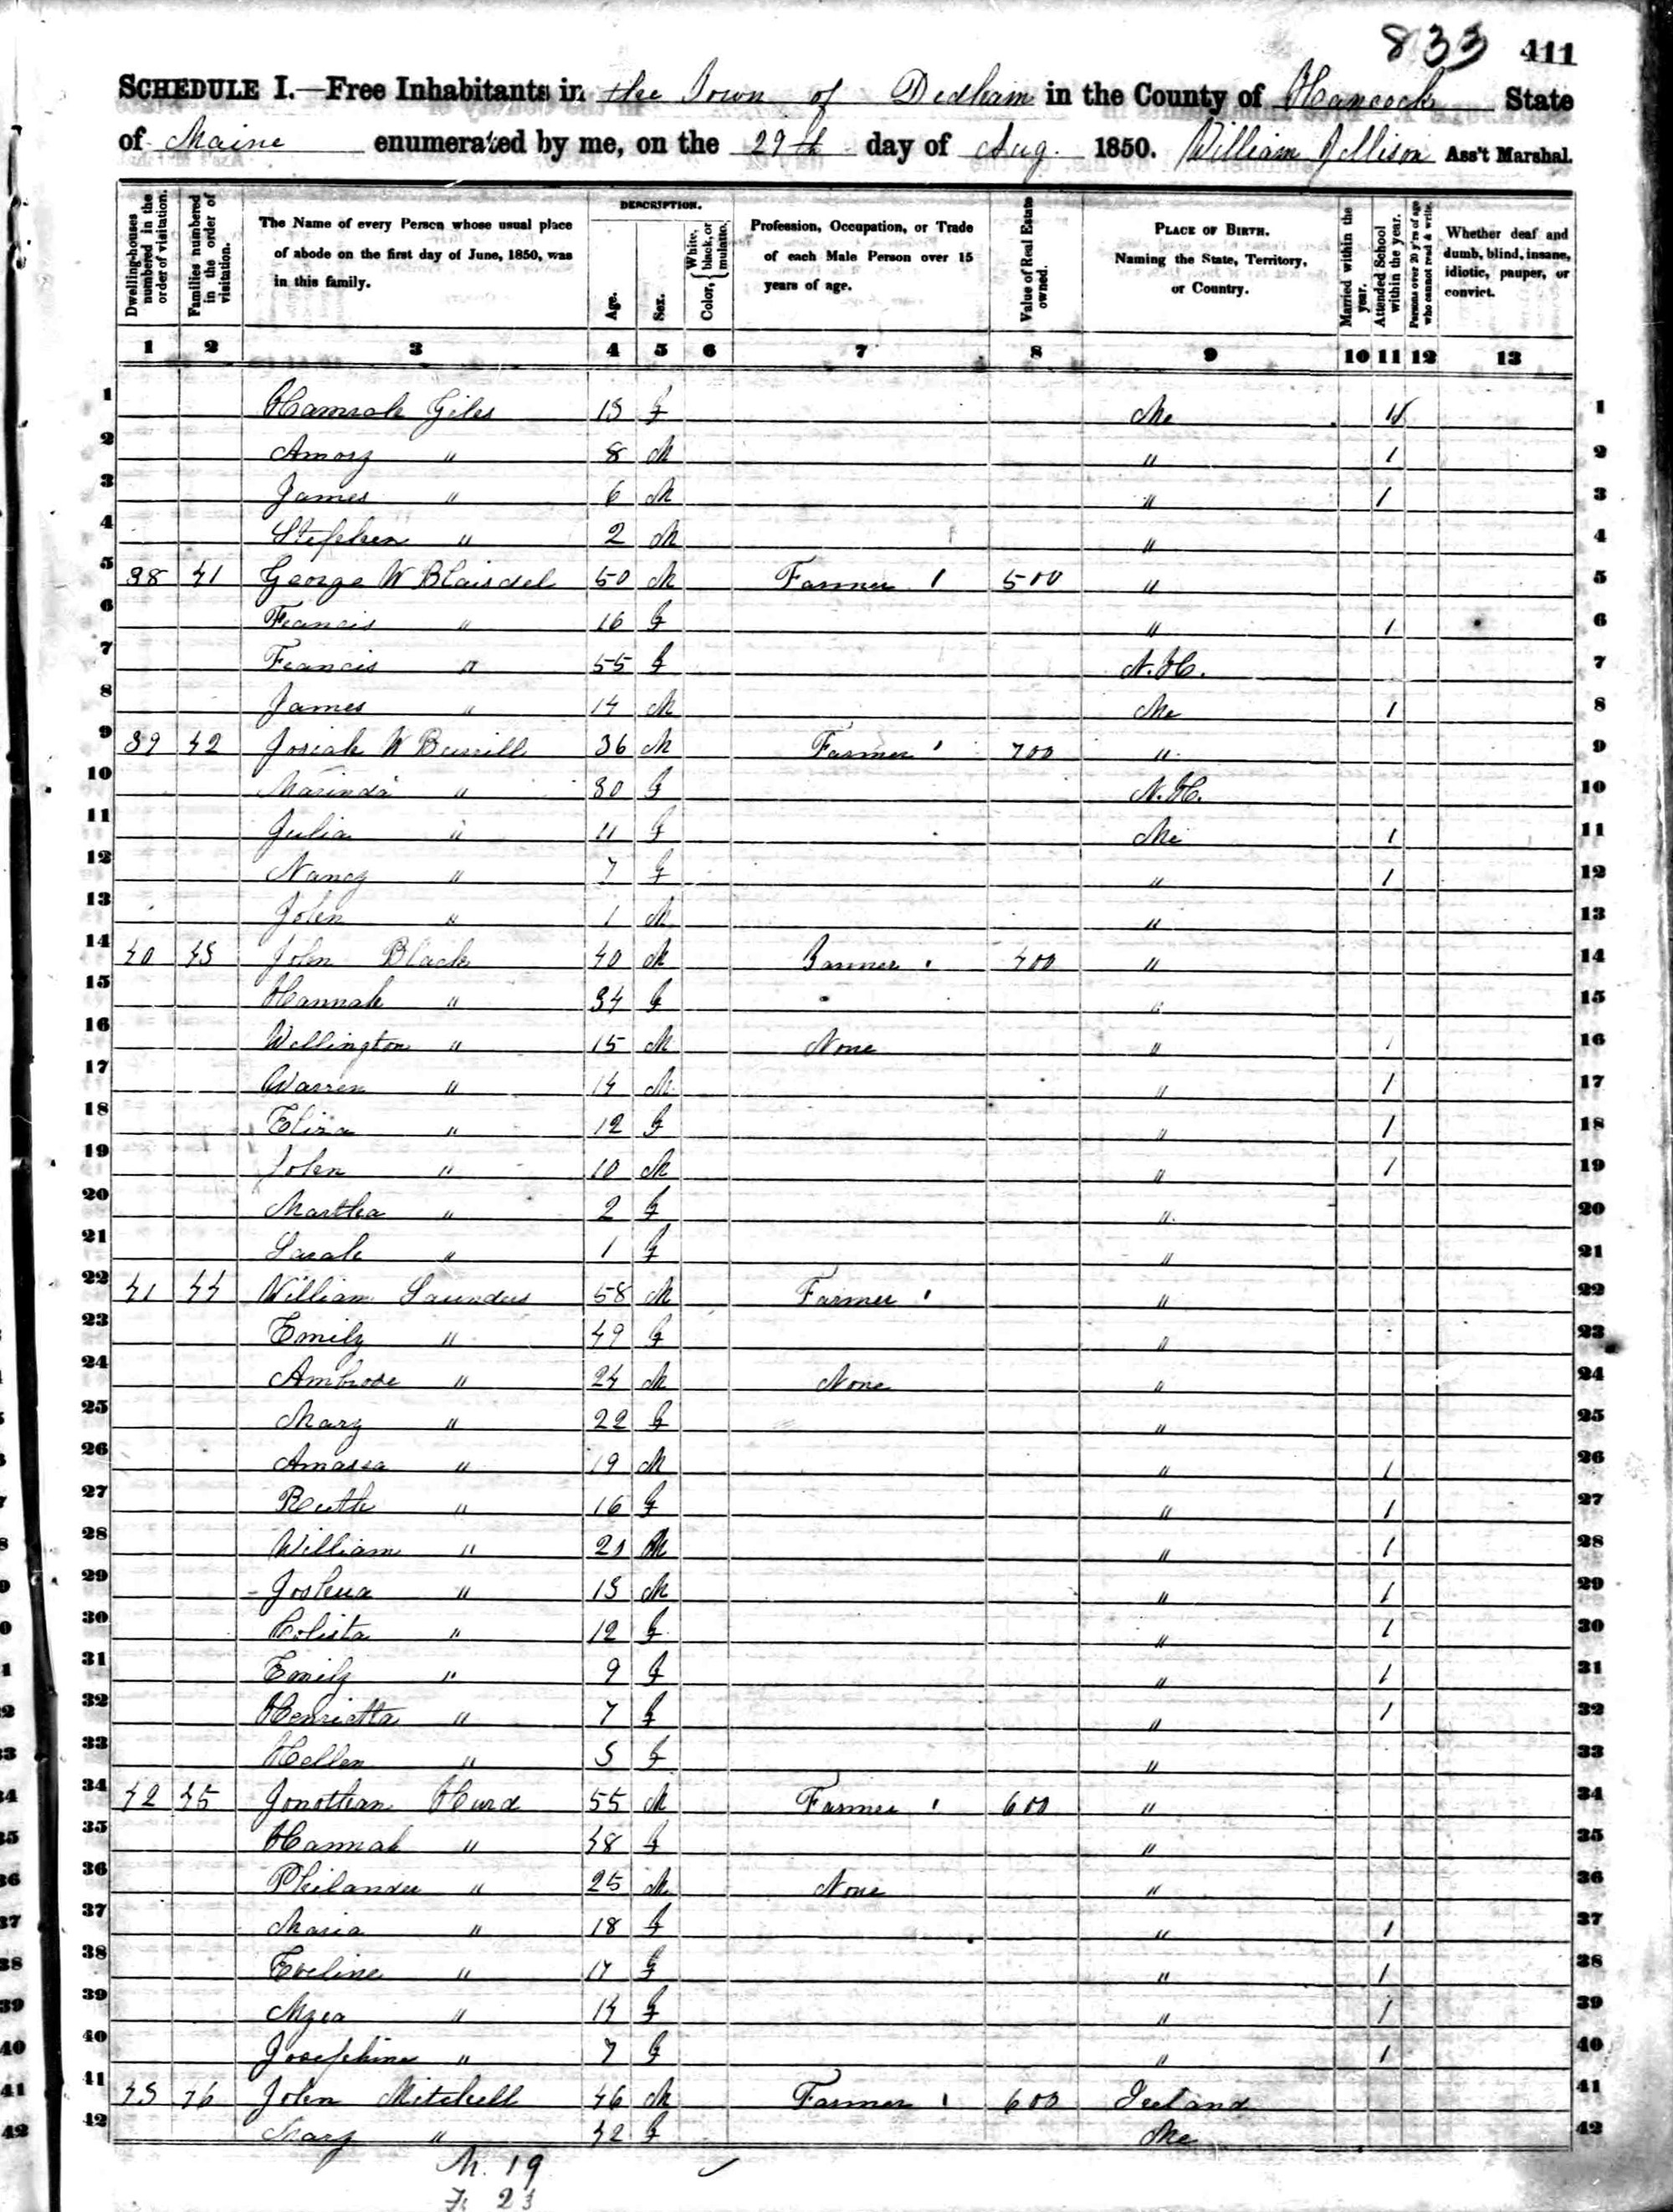 833 411
SCHEDULE I.—Free Inhabitants in the Town of Dedham in the County of Hancock State
of Maine enumerated by me, on the 29th day of Aug. 1850. William Jellison Ass't Marshal.
Dwelling-houses numbered in the order of visitation.
Families numbered in the order of visitation.
The Name of every Person whose usual place of abode on the first day of June, 1850, was in this family.
DESCRIPTION.
Age.
Sex.
Color, { White, black, or mulatto.
Profession, Occupation, or Trade of each Male Person over 15 years of age.
Value of Real Estate owned.
PLACE OF BIRTH. Naming the State, Territory, or Country.
Married within the year.
Attended School within the year.
Persons over 20 y'rs of age who cannot read & write.
Whether deaf and dumb, blind, insane, idiotic, pauper, or convict.
1 2 3 4 5 6 7 8 9 10 11 12 13
1 Hannah Giles 13 F Me 1 1
2 Amory " 8 M " 1 2
3 James " 6 M " 1 3
4 Stephen " 2 M " 4
5 38 41 George W Blaisdel 50 M Farmer 1 500 " 5
6 Francis " 16 F " 1 6
7 Francis " 55 F N.H. 7
8 James " 14 M Me 1 8
9 39 42 Josiah W Burrill 36 M Farmer ' 700 " 9
10 Marinda " 30 F N.H. 10
11 Julia " 11 F Me 1 11
12 Nancy " 7 F " 1 12
13 John " 1 M " 13
14 40 43 John Black 40 M Farmer ' 400 " 14
15 Hannah " 34 F " 15
16 Wellington " 15 M None " 1 16
17 Warren " 14 M " 1 17
18 Eliza " 12 F " 1 18
19 John " 10 M " 1 19
20 Martha " 2 F " 20
21 Sarah " 1 F " 21
22 41 44 William Saunders 58 M Farmer ' " 22
23 Emily " 49 F " 23
24 Ambrose " 24 M None " 24
25 Mary " 22 F " 25
26 Amassa " 19 M " 1 26
27 Ruth " 16 F " 1 27
28 William " 21 M " 1 28
29 Joshua " 13 M " 1 29
30 Colista " 12 F " 1 30
31 Emily " 9 F " 1 31
32 Henrietta " 7 F " 1 32
33 Hellen " 3 F " 33
34 42 45 Jonothan Hurd 55 M Farmer ' 600 " 34
35 Hannah " 48 F " 35
36 Philander " 25 M None " 36
37 Maria " 18 F " 1 37
38 Eveline " 17 F " 1 38
39 " 14 F " 1 39
40 Josephine " 7 F " 1 40
41 43 46 John Mitchell 46 M Farmer ' 600 Ireland 41
42 Mary " 42 F Me 42
M. 19
F. 23